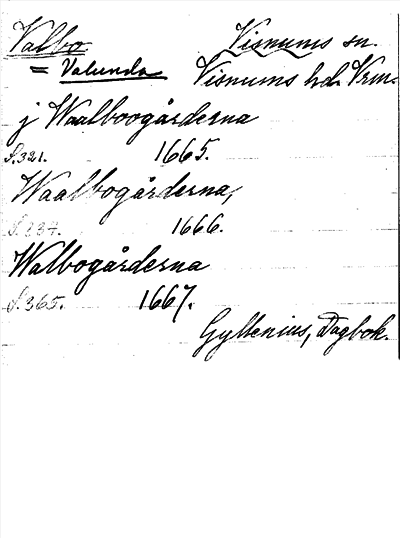 Valbo Visnums sn.
= Valunda Visnums hd. Vrm.
j Waalboogårderna
S.321. 1665.
Waalbogårderna,
S.337. 1666.
Walbogårderna
S.365. 1667.
Gyllenius, Dagbok.